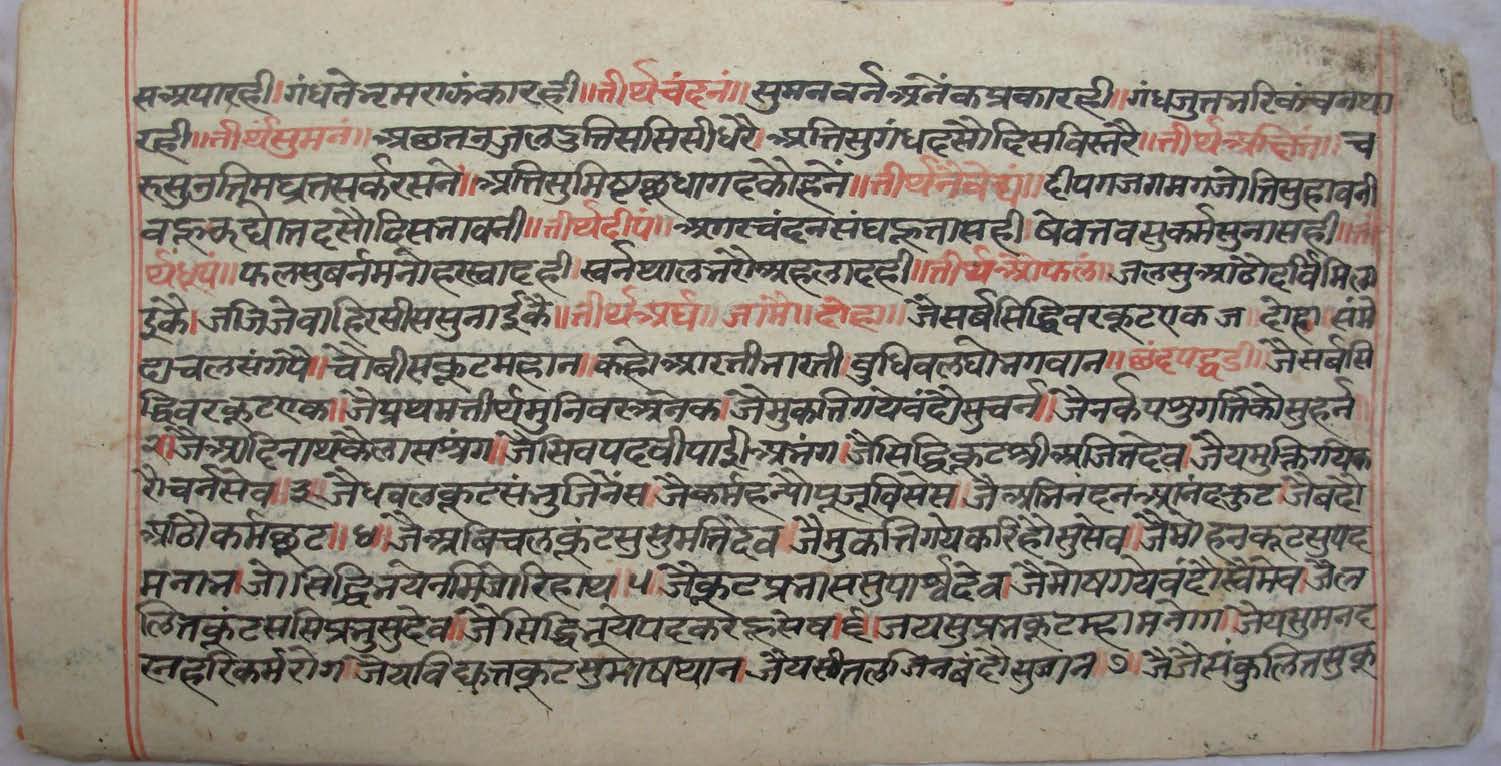 सअपारही। गंधतेभ्रमराऊंकारही॥तीर्थचंदनं॥ सुमनवर्नअनेंकप्रकारही॥ गंधजुतभरिकंचनथा
रही॥तीर्थसुमनं॥ अछतउजलदुतिससिसीधरै। अतिसुगंधदसौदिसविस्तरै॥तीर्थअछितं॥ च
रुसुउत्तिमघ्रतसर्करसने॥ अतिसुमिष्टछुधागदकौहनें॥तीर्थनैवेद्यं॥ दीपगजगमगजोतिसुहावनी
वहुरुद्योतदसौदिसभावनी॥तीर्थदीपं॥ अगरचंदनसंघहूतासही। षेवतवसुकर्मसुनासही॥ती
र्थधूपं॥ फलसुबर्नमनोहरस्वादही। स्वर्नथालभरोअहलादही॥तीर्थश्रीफलं। जलसुआठोदर्विमिला
इकै। जजिजेवाहिरसीससुनाईकै॥तीर्थअर्घ॥ दोहा॥ जैसर्बसिद्धिवरकूटएक ज दोहा संमे
दाचलसंगपै॥ चौबीसकूटमहान। कहोआरतीभारती। बुधिबलघोभगवान॥छंदपद्धडी॥ जैसर्वसि
द्धिवरकूटएक॥ जैप्रथमतीर्थमुनिवरअनेक। जैमुकतिगयेवंदौसुचर्न॥ जैनर्कपशुगतिकौसुहर्न
२॥जैआदिनाथकैलासश्रंग॥ जैसिवपदवीपाईअभंग। जैसिद्धिकूटश्रीअजितदेव। जैयमुक्तिगयेक
रौचर्नसेव।३। जैधवलकूटसंभुजिनेस। जैकर्महन्यौपूजूविसेस। जैअभिनदनआनंदकुट। जैबंदौ
आठौकर्मछूट॥४। जैअबिचलकूंटसुसुमतिदेव। जैमुकतिगयेकरिहौसुसेव॥ जैमोहनकूटसुपद
मनाभ। जो सिद्धिभयेनमिजोरिहाथ।५। जैकूटप्रभाससुपार्श्वदेव। जैमोषगयेवंदौस्वैमेव। जैल
लितकूंटससिप्रभुसुदेव॥ जैसिद्धिभयेपदकरहूसेव।६। जयसुप्रभकूटम्हामनोग। जैयसुमनद
तहरिकर्मरोग। जैयविद्युतकूटसुमोषथान। जैयसीतलजिनबंदौसुजान।७॥ जैजैसंकुलितसुकू